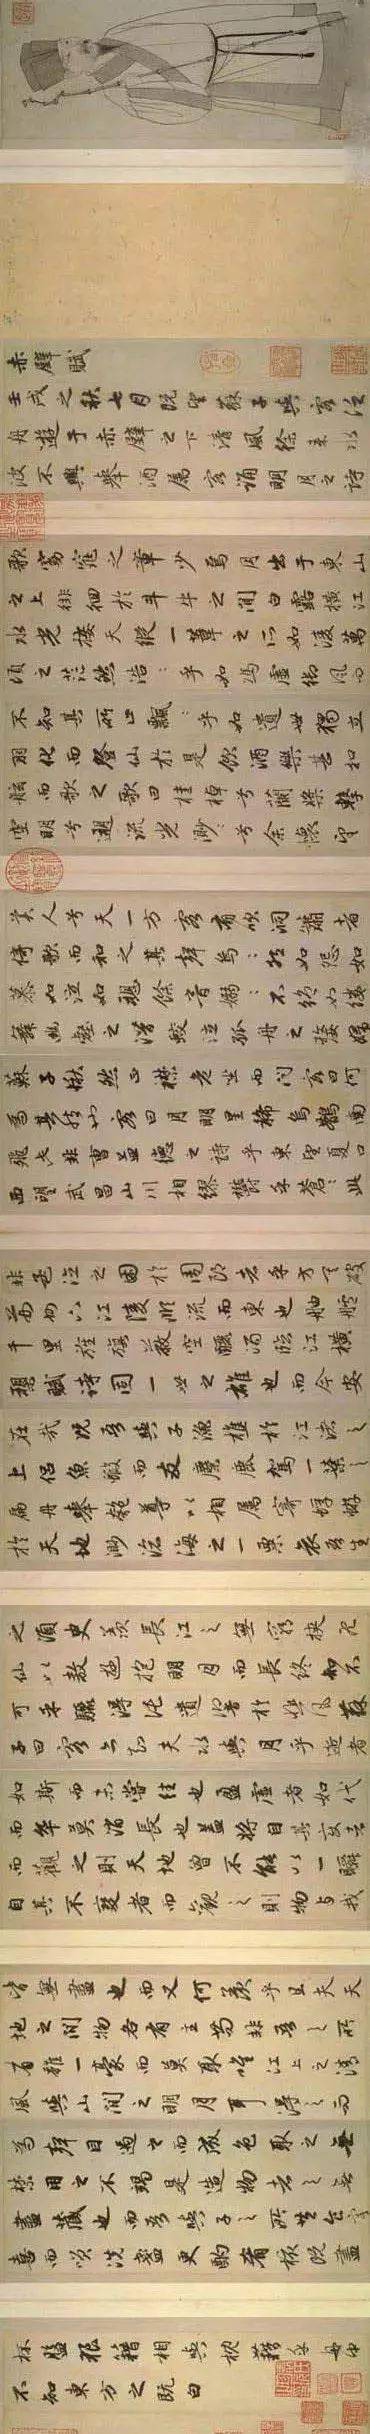 赤壁賦
壬戌之秋七月既望蘇子與客泛
舟遊于赤壁之下清風徐來水
波不興舉酒屬客誦明月之詩
歌窈窕之章少焉月出于東山
之上徘徊於斗牛之間白露橫江
水光接天縱一葦之所如凌萬
頃之茫然浩:乎如馮虛御風而
不知其所止飄:乎如遺世獨立
羽化而登仙於是飲酒樂甚扣
舷而歌之歌曰桂棹兮蘭槳擊
空明兮遡流光渺:兮余懷望
美人兮天一方客有吹洞簫者
倚歌而和之其聲烏:然如怨如
慕如泣如愬餘音嫋:不絕如縷
舞幽壑之潛蛟泣孤舟之嫠婦
蘇子愀然正襟危坐而問客曰何
為其然也客曰月明星稀烏鵲南
飛此非曹孟德之詩乎東望夏口
西望武昌山川相繆鬱乎蒼:此
非孟德之困於周郎者乎方其破
荊州下江陵順流而東也舳艫
千里旌旗蔽空釃酒臨江橫
槊賦詩固一世之雄也而今安
在哉況吾與子漁樵於江渚之
上侶魚蝦而友麋鹿駕一葉之
扁舟舉匏尊以相屬寄蜉蝣
於天地渺滄海之一粟哀吾生
之須臾羨長江之無窮挾飛
仙以遨遊抱明月而長終知不
可乎驟得託遺響於悲風蘇
子曰客亦知夫水與月乎逝者
如斯而未嘗往也盈虛者如代
而卒莫消長也蓋將自其變者
而觀之則天地曾不能以一瞬
自其不變者而觀之則物與我
皆無盡也而又何羨乎且夫天
地之間物各有主苟非吾之所
有雖一毫而莫取惟江上之清
風與山間之明月耳得之而
為聲目遇之而成色取之無
禁用之不竭是造物者之無
盡藏也而吾與子之所共食客
喜而笑洗盞更酌肴核既盡
杯盤狼藉相與枕藉乎舟中
不知東方之既白